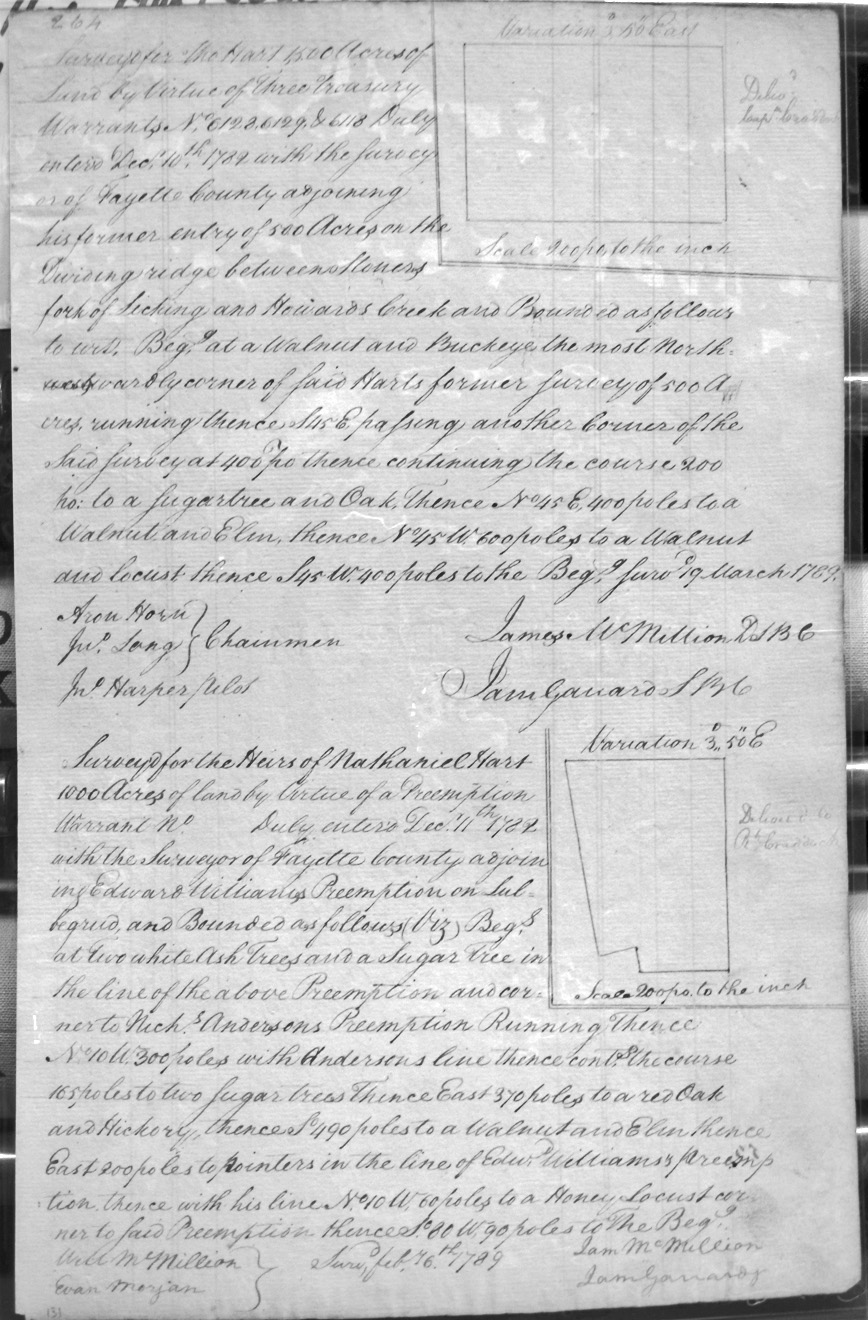 264
Survey'd for Tho Hart 1500 Acres of
Land by Virtue of three Treasury
Warrants No. 6128, 6129, & 6118 Duly
entered Decr. 10th. 1782 with the Survey
or of Fayette County adjoining
his former entry of 500 Acres on the
Dividing ridge between Stoners
fork of Licking and Howards Creek and Bounded as follows
to wit. Begg. at a Walnut and Buckeye the most North-
wardly corner of said Harts former Survey of 500 A
cres, running thence S45E, passing another Corner of the
Said Survey at 400 po thence continuing the course 200
po: to a Sugartree and Oak, Thence No45E, 400 poles to a
Walnut and Elm, thence No45W. 600 poles to a Walnut
and locust thence S45W. 400 poles to the Begg. Survd. 19 March 1789.
Variation 3° 50" East
Scale 200 po. to the inch
Delivd.
Aron Horn
Jno. Long } Chainmen
Jno. Harper pilot
James McMillion D.S.B.C
Jam Garrard S.B.C
Survey'd for the Heirs of Nathaniel Hart
1000 Acres of land by Virtue of a Preemption
Warrant No Duly entered Dec. 11th 1782
with the Surveyor of Fayette County adjoin
ing Edward Williams Preemption on Lul-
begrud, and Bounded as follows (Viz) Begg.
at two white Ash Trees and a Sugar Tree in
the line of the above Preemption and cor-
ner to Nichs. Andersons Preemption Running Thence
No.10W. 300 poles with Andersons line thence contg. the course
165 poles to two Sugar trees Thence East 370 poles to a red Oak
and Hickory, thence So. 490 poles to a Walnut and Elm thence
East 200 poles to pointers in the line of Edwd. Williams's preemp
tion. thence with his line No.10W, 60 poles to a Honey Locust cor-
ner to said Preemption thence So. 80 W. 90 poles to The Begg.
Variation 3° 50" E
Scale 200 po. to the inch
Deliverd to
Will McMillion
Evan Morgan
Survd. feb. 26.th 1789
Jam McMillion
Jam Garrard
131